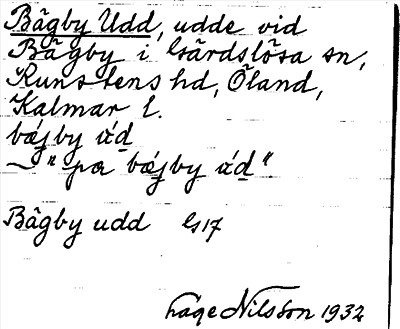 Bägby Udd, udde vid
Bägby i Gärdslösa sn,
Runstens hd, Öland,
Kalmar l.
bæ̀jby ùd
— " pα bæ̀jby ùd "
Bägby udd G17
Lage Nilsson 1932